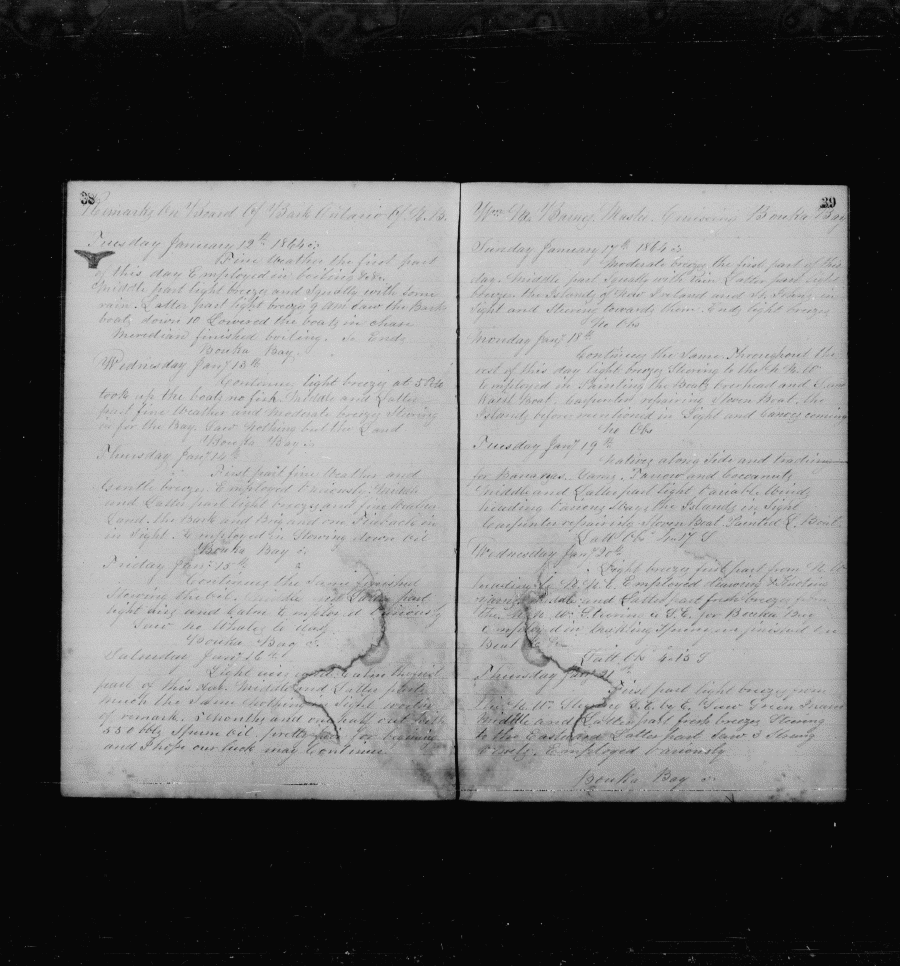 38
Remarks On Board Of Bark Ontario Of N.B.
Tuesday January 12th 1864
Fine weather the first part
of this day Employed in boiling &c &c.
Middle part light breezes and Squalls with some
rain. Latter part light breezes 9 AM saw the Bark
boats down 10 Lowered the boats in chase
Meridian finished boiling. So Ends
Bouka Bay
Wednesday Jany 13th
Continues light breezes at 5
took up the boats no fish. Middle and Latter
part fine Weather and moderate breezes Steering
in for the Bay. Saw Nothing but the Land
Bouka Bay
Thursday Jany 14th
First part fine Weather and
Gentle breeze. Employed Variously. Middle
and Latter part light breezes and fine Weather
Land, the Bark and Brig and one in
in Sight. Employed in Stowing down Oil
Bouka Bay
Friday Jany 15th
Continues the Same finished
Stowing the oil. Middle and Latter part
light airs and Calm Employed Variously
Saw no Whales to day
Bouka Bay
Saturday Jany 16th
Light airs and Calm the first
part of this day. Middle and Latter part
much the Same nothing in Sight worthy
of remark. 5 Months and one half out with
550 bbls Sperm Oil. pretty fair for beginning
and I hope our luck may Continue
39
Wm M. Barnes Master. Cruising Bouka Bay
Sunday January 17th 1864
Moderate breezes the first part of this
day. Middle part Squalls with rain Latter part light
breezes the Islands of New Ireland and St. in
Sight and Steering towards them. Ends light breezes
No Obs
Monday Jany 18th
Continues the Same. Throughout the
rest of this day light breezes Steering to the N.W
Employed in Painting the Boats Overhead and
Waist Boat. Carpenter repairing Stoven Boat. the
Islands before mentioned in Sight and Canoes coming
No Obs
Tuesday Jany 19th
Natives along Side and trading
for Bananas. Yams. and Cocoanuts
Middle and Latter part light Variable Winds
heading Various Ways the Islands in Sight
Carpenter repairing Stoven Boat. Painted L. Boat
Latt Obs 4..17 S
Wednesday Jany 20th
Light breezes first part from N.W
heading to N.N.E. Employed drawing &
yarns. Middle and Latter part fresh breezes from
the N.N.W. Steering to S.E. for Bouka Bay
Employed in making Spunyarn finished the
Boat &c
Latt Obs 4..15 S
Thursday Jany 21st
First part light breezes from
N.W. Steering S.E. by E. Saw Green Island
Middle and Latter part fresh breezes Steering
to the Eastward Latter part Saw 3 Strong
Employed Variously
Bouka Bay